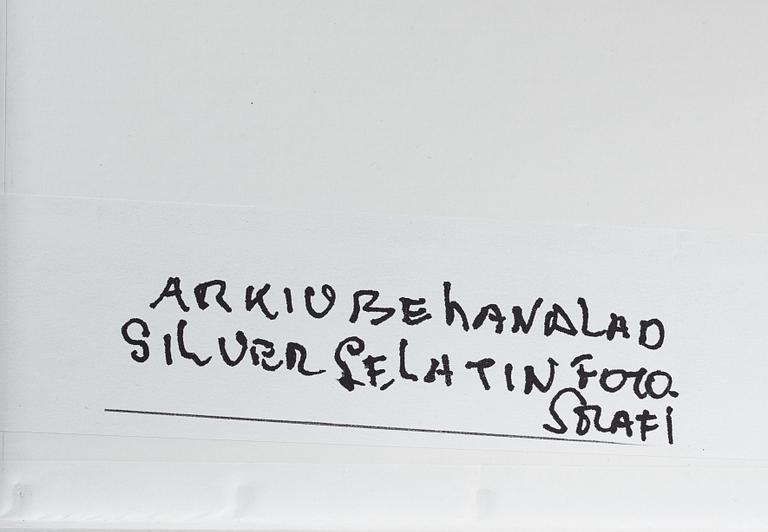 ARKIVBEHANDLAD
SILVERGELATINFOTO.
GRAFI